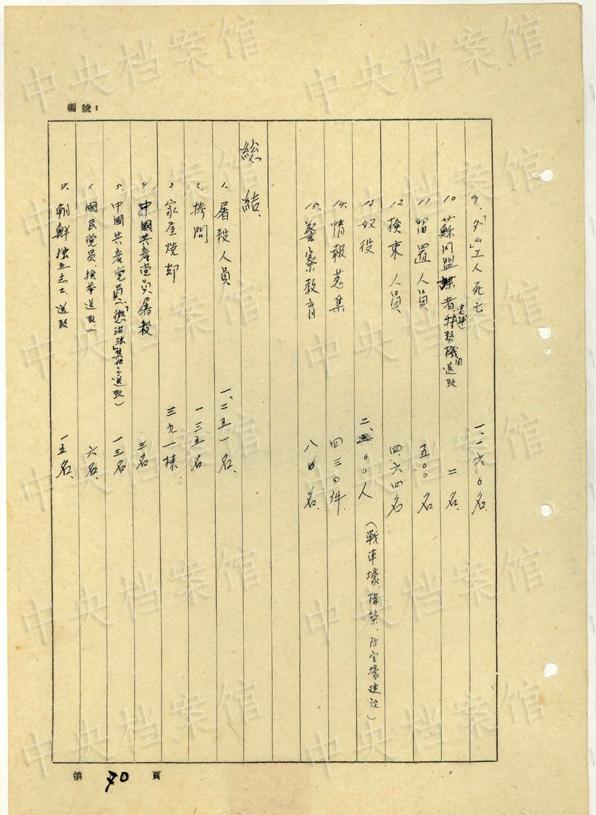 編號：
9. 「ダム」工人死亡 一、一六〇名
10. 蘇同盟諜者特務機関送致 二名
11. 留置人員 五〇〇名
12. 検束人員 四六四名
13. 奴役 二、〇〇人（戦車壕構築、防空壕建設）
14. 情報蒐集 四三〇件
15. 警察教育 八〇名
総結
1. 屠殺人員 一、二五一名
2. 拷問 一三五名
3. 家屋焼却 三九一棟
4. 中國共産党员屠殺 三名
5. 中國共産党员（送致） 一三名
6. 國民党员検挙送致 六名
7. 朝鮮独立志士送致 一五名
第 70 頁
中央档案馆